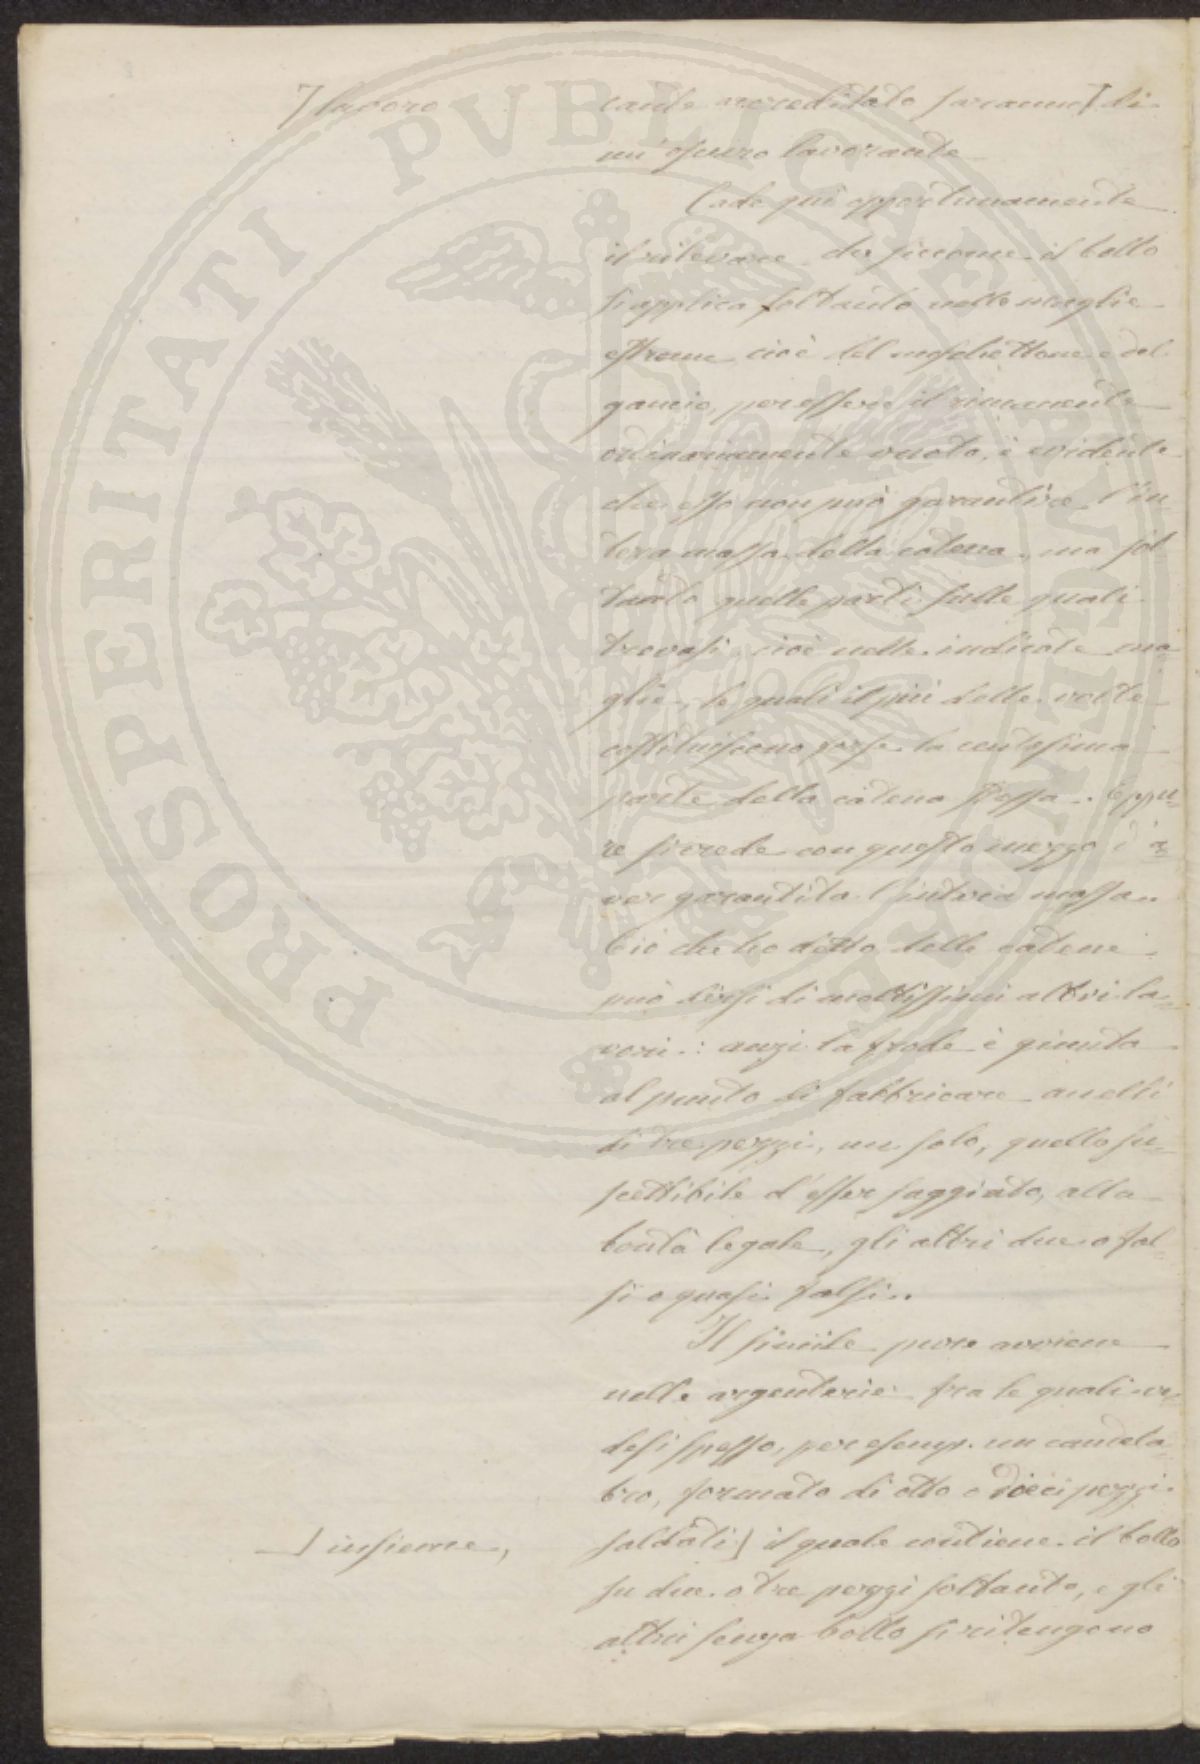 ⁊ lavoro
cante accreditato saranno ⁊ di
un' oscuro lavorante
Cade quì opportunamente
il rilevare che siccome il bollo
si applica soltanto nelle maglie
estreme cioè del moschettone e del
gancio, per essere il rimanente
ordinariamente vuoto, è evidente
che esso non può garantire l'in
tera massa della catena, ma sol
tanto quelle parti sulle quali
trovasi cioè nelle indicate ma
glie, le quali il più delle volte
costituiscono forse la centesima
parte della catena stessa. Eppu=
re si crede con questo mezzo d'a
ver garantita l'intera massa..
Ciò che ho detto delle catene
può dirsi di moltissimi altri la=
vori: anzi la frode è giunta
al punto di fabbricare anelli
di tre pezzi, un solo, quello su=
scettibile d'esser saggiato, alla
bontà legale, gli altri due o fal=
si o quasi falsi..
Il simile pure avviene
nelle argenterie fra le quali ve=
desi spesso, per esemp. un candela=
bro, formato di otto o dieci pezzi
saldati ⌋ il quale contiene il bollo
su due o tre pezzi soltanto, e gli
altri senza bollo si ritengono
⌋ insieme,
PROSPERITATI PVBLICAE AVGENDAE